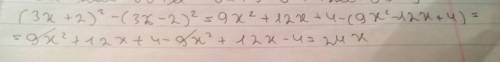 (3x+2)²-(3x-2)²=9x²+12x+4-(9x²-12x+4)=
=9x²+12x+4-9x²+12x-4=24x